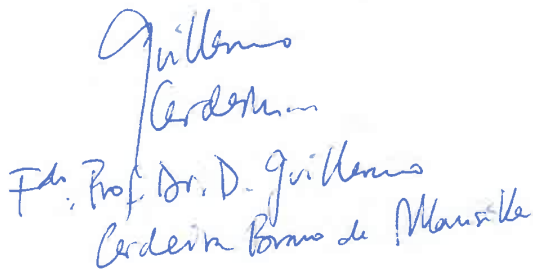 Guillermo
Cerdeira
Fdo. Prof. Dr. D. Guillermo
Cerdeira Bravo de Mansilla